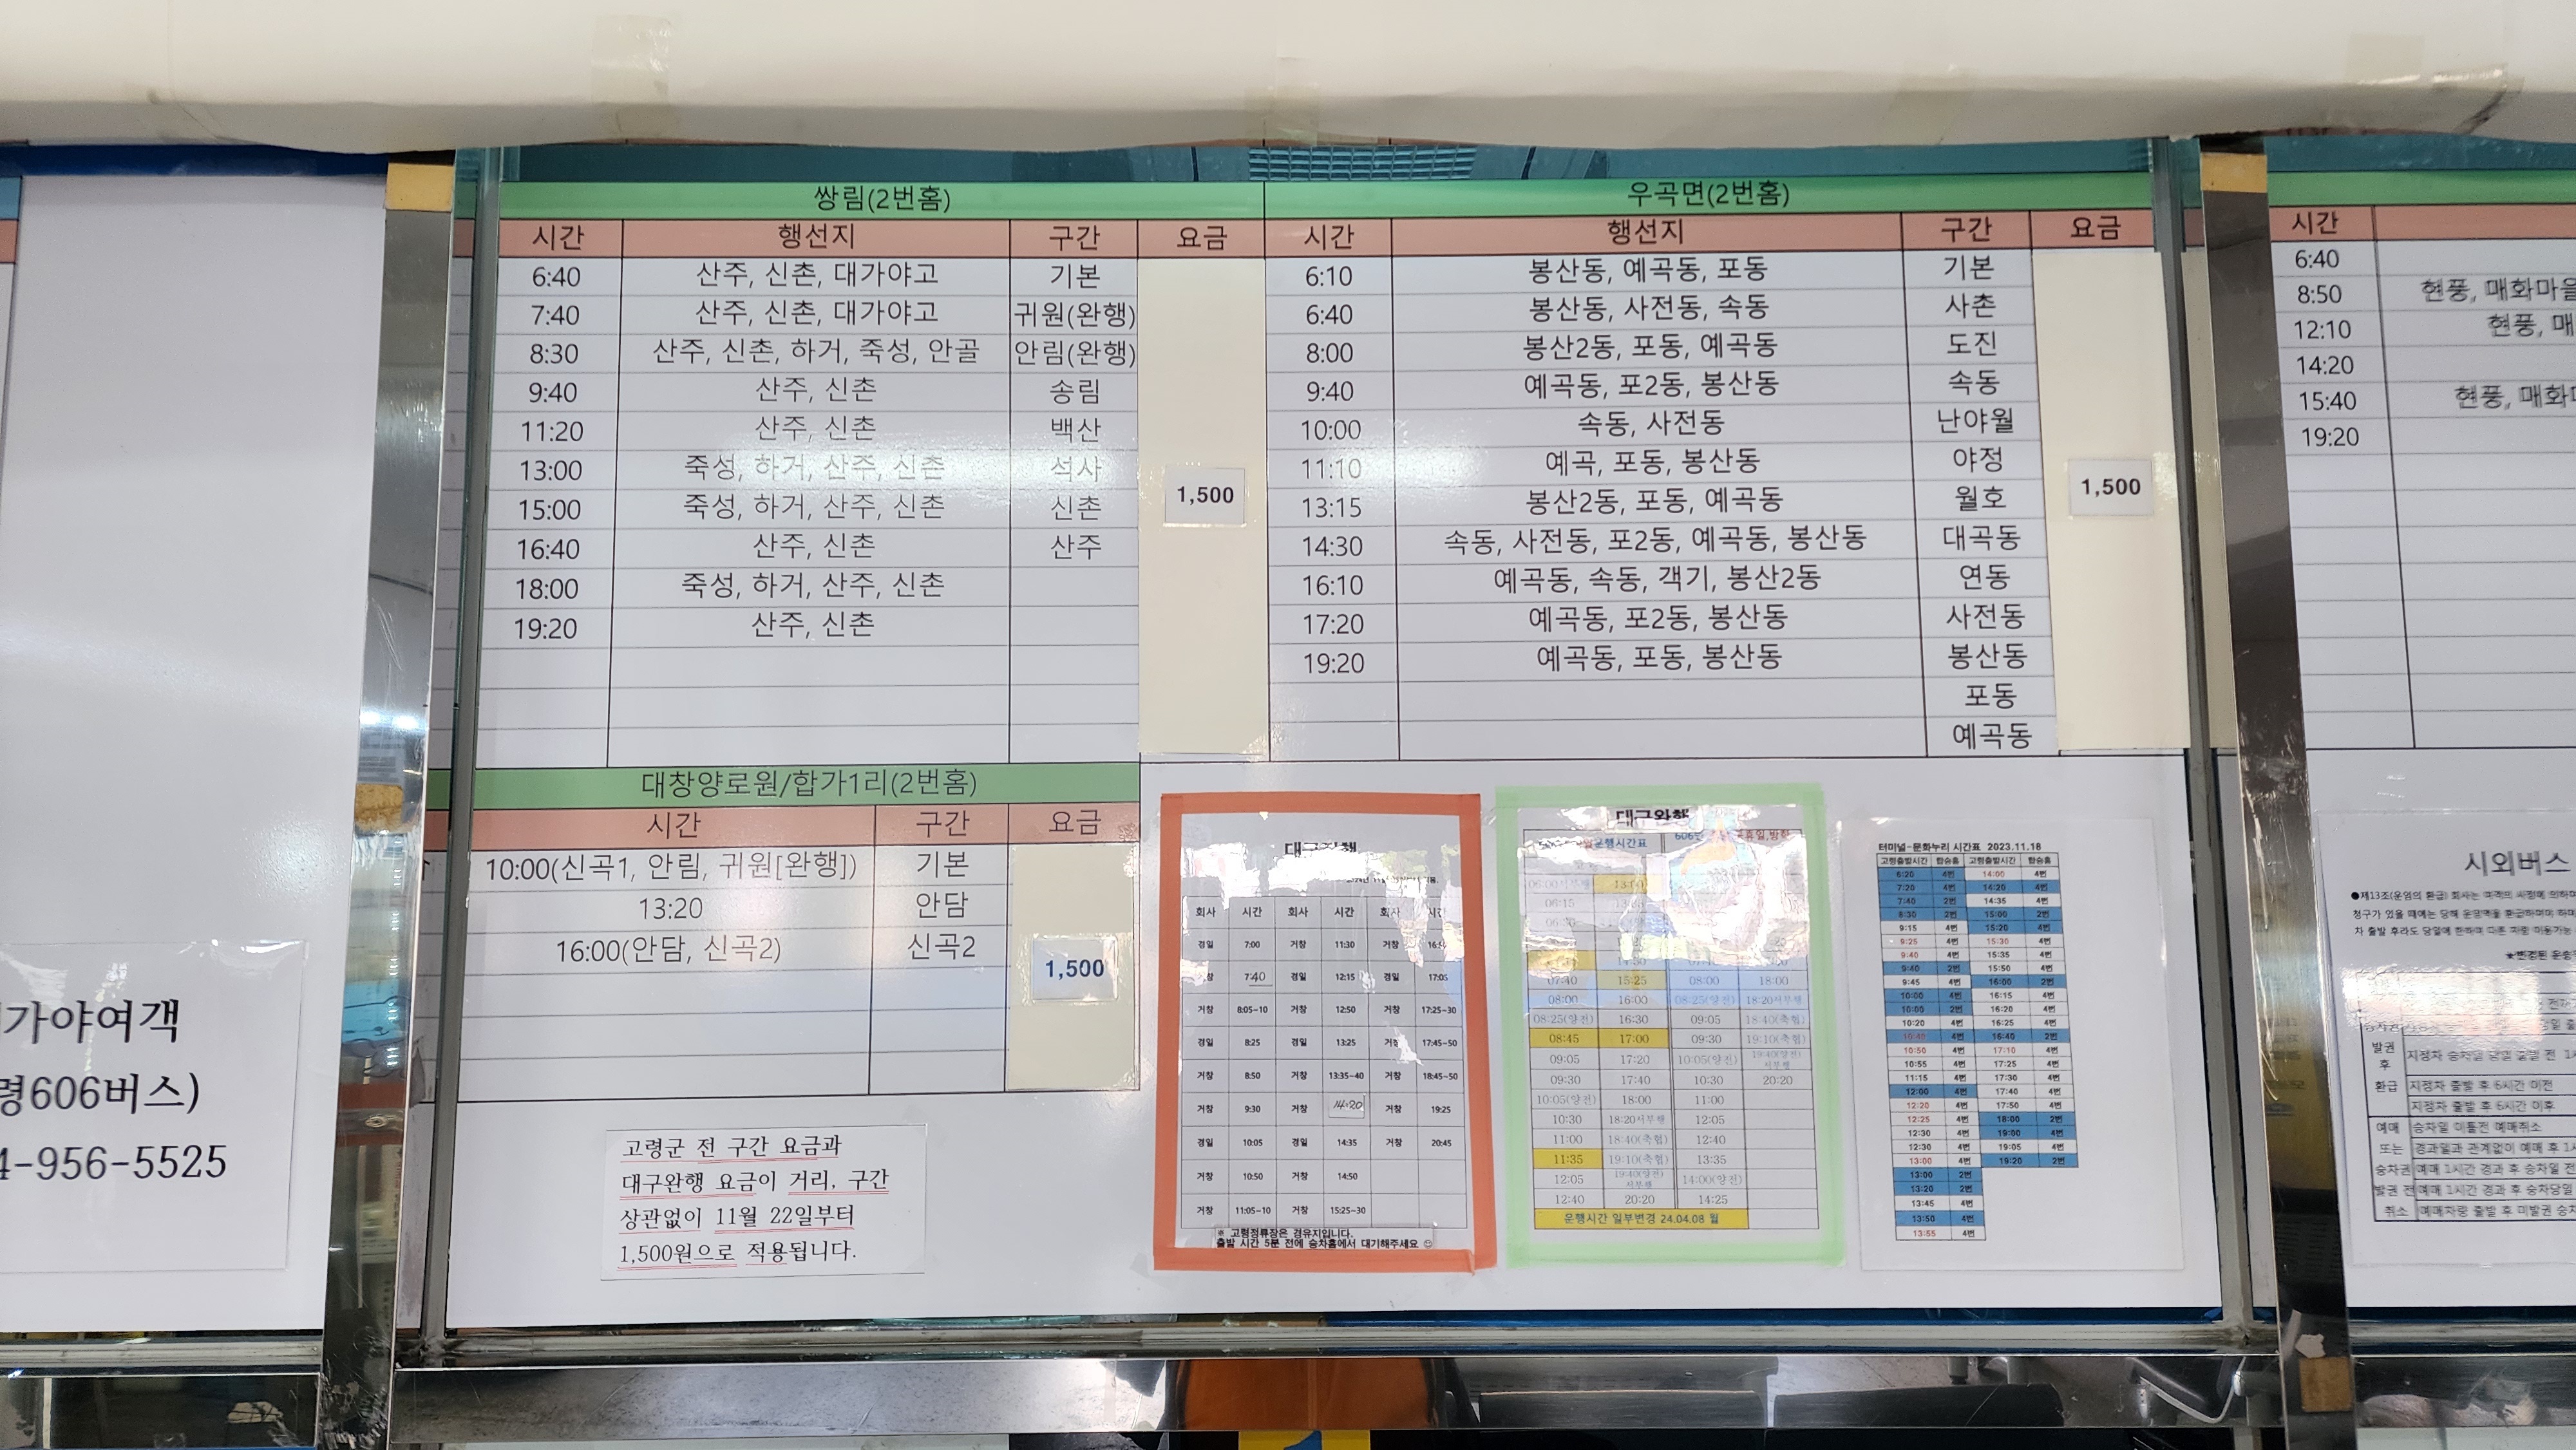 쌍림(2번홈)
시간 행선지 구간 요금
6:40 산주, 신촌, 대가야고 기본
7:40 산주, 신촌, 대가야고 귀원(완행)
8:30 산주, 신촌, 하거, 죽성, 안골 안림(완행)
9:40 산주, 신촌 송림
11:20 산주, 신촌 백산
13:00 죽성, 하거, 산주, 신촌 석사
15:00 죽성, 하거, 산주, 신촌 신촌
16:40 산주, 신촌 산주
18:00 죽성, 하거, 산주, 신촌
19:20 산주, 신촌
1,500
우곡면(2번홈)
시간 행선지 구간 요금
6:10 봉산동, 예곡동, 포동 기본
6:40 봉산동, 사전동, 속동 사촌
8:00 봉산2동, 포동, 예곡동 도진
9:40 예곡동, 포2동, 봉산동 속동
10:00 속동, 사전동 난야월
11:10 예곡, 포동, 봉산동 야정
13:15 봉산2동, 포동, 예곡동 월호
14:30 속동, 사전동, 포2동, 예곡동, 봉산동 대곡동
16:10 예곡동, 속동, 객기, 봉산2동 연동
17:20 예곡동, 포2동, 봉산동 사전동
19:20 예곡동, 포동, 봉산동 봉산동
포동
예곡동
1,500
시간
6:40
8:50 현풍, 매화마을
12:10 현풍, 매
14:20
15:40 현풍, 매화
19:20
대창양로원/합가1리(2번홈)
시간 구간 요금
10:00(신곡1, 안림, 귀원[완행]) 기본
13:20 안담
16:00(안담, 신곡2) 신곡2
1,500
가야여객
령606버스)
4-956-5525
고령군 전 구간 요금과
대구완행 요금이 거리, 구간
상관없이 11월 22일부터
1,500원으로 적용됩니다.
회사 시간 회사 시간 회사 시간
경일 7:00 거창 11:30 거창
7:40 경일 12:15 경일 17:05
거창 8:05~10 거창 12:50 거창 17:25~30
경일 8:25 경일 13:25 17:45~50
거창 8:50 거창 13:35~40 거창 18:45~50
거창 9:30 거창 14:20 거창 19:25
경일 10:05 경일 14:35 거창 20:45
거창 10:50 거창 14:50
거창 11:05~10 거창 15:25~30
※ 고령정류장은 경유지입니다.
출발 시간 5분 전에 승차홈에서 대기해주세요
대구완행
운행시간표
06:15
07:40 15:25 08:00 18:00
08:00 16:00 08:25(양전) 18:20서부행
08:25(양전) 16:30 09:05 18:40(축협)
08:45 17:00 09:30 19:10(축협)
09:05 17:20 10:05(양전) 19:40(양전)서부행
09:30 17:40 10:30 20:20
10:05(양전) 18:00 11:00
10:30 18:20서부행 12:05
11:00 18:40(축협) 12:40
11:35 19:10(축협) 13:35
12:05 19:40(양전)서부행 14:00(양전)
12:40 20:20 14:25
운행시간 일부변경 24.04.08 월
터미널-문화누리 시간표 2023.11.18
고령출발시간 탑승홈 고령출발시간 탑승홈
6:20 4번 14:00 4번
7:20 4번 14:20 4번
7:40 2번 14:35 4번
8:30 2번 15:00 2번
9:15 4번 15:20 4번
9:25 4번 15:30 4번
9:40 4번 15:35 4번
9:40 2번 15:50 4번
9:45 4번 16:00 2번
10:00 4번 16:15 4번
10:00 2번 16:20 4번
10:20 4번 16:25 4번
10:40 4번 16:40 2번
10:50 4번 17:10 4번
10:55 4번 17:25 4번
11:15 4번 17:30 4번
12:00 4번 17:40 4번
12:20 4번 17:50 4번
12:25 4번 18:00 2번
12:30 4번 19:00 4번
12:30 4번 19:05 4번
13:00 4번 19:20 2번
13:00 2번
13:20 2번
13:45 4번
13:50 4번
13:55 4번
시외버스
발권 후 환급
지정차 출발 후 6시간 이전
지정차 출발 후 6시간 이후
예매 또는 승차권 발권 전 취소
승차일 이틀전 예매취소